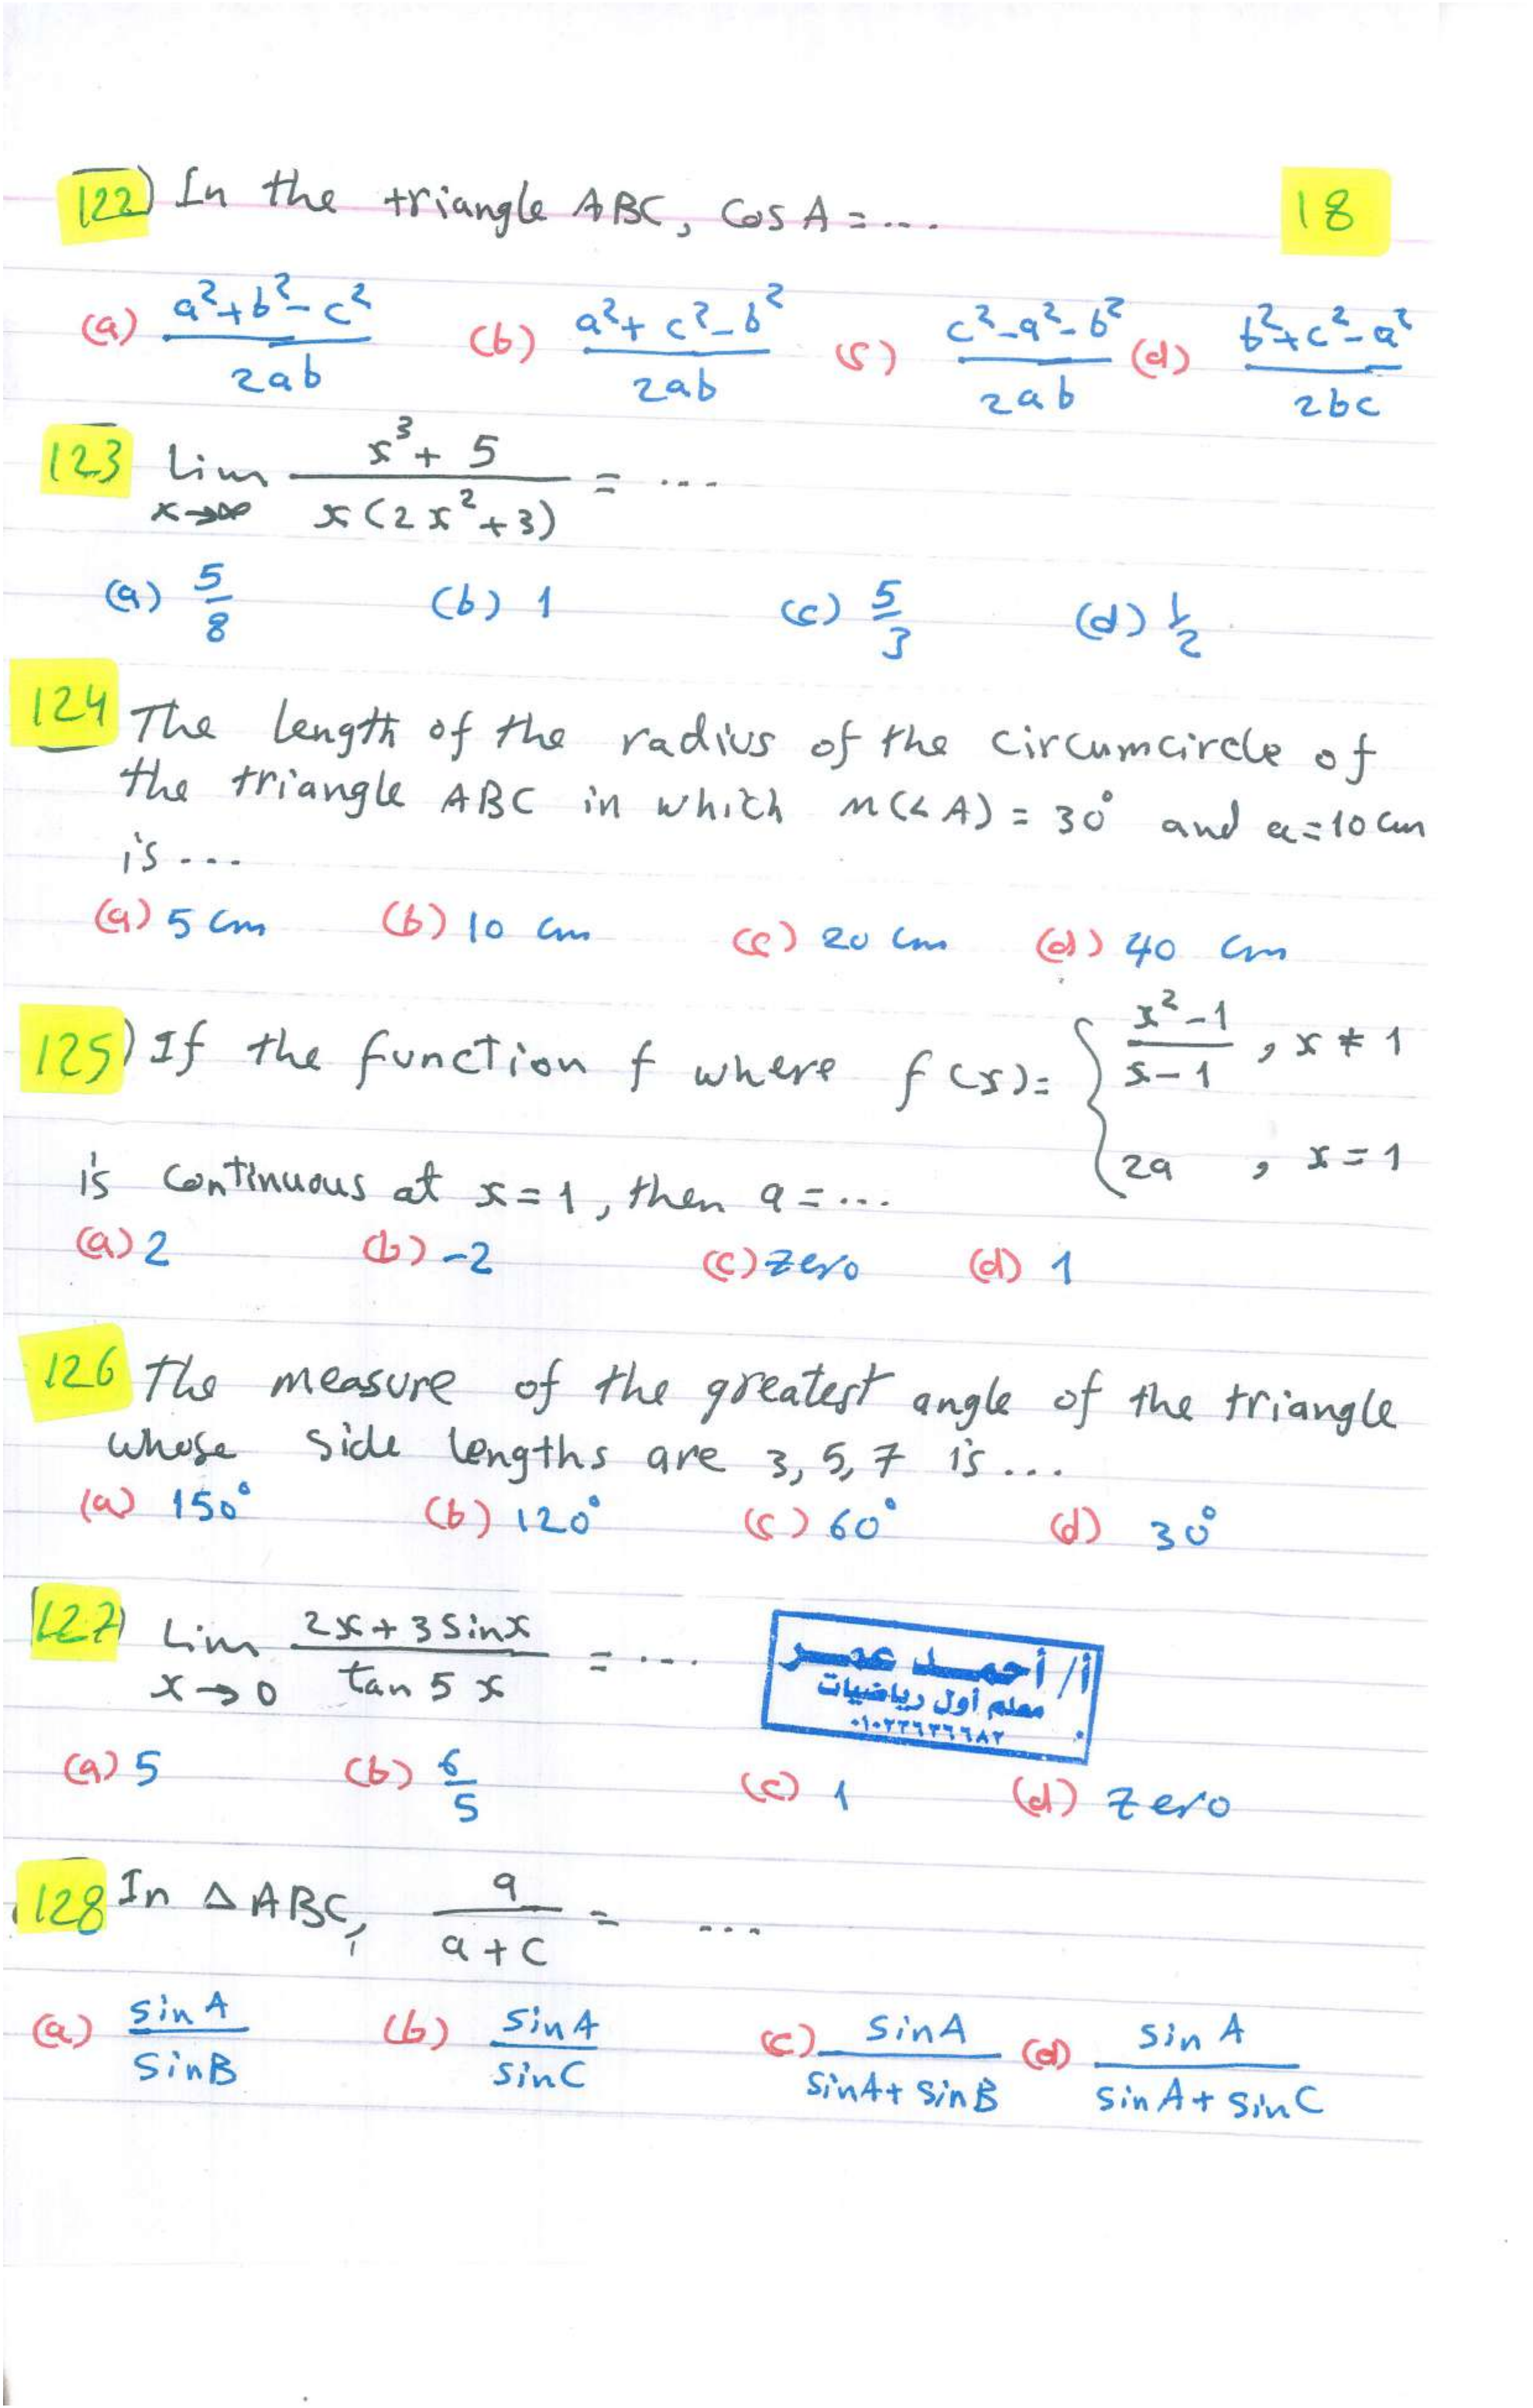 122) In the triangle ABC, Cos A = ... 18
(a) a²+b²-c² / 2ab (b) a²+c²-b² / 2ab (c) c²-a²-b² / 2ab (d) b²+c²-a² / 2bc
123 Lim x→∞ x³+5 / x(2x²+3) = ...
(a) 5/8 (b) 1 (c) 5/3 (d) 1/2
124 The length of the radius of the circumcircle of
the triangle ABC in which m(∠A) = 30° and a=10 cm
is ...
(a) 5 cm (b) 10 cm (c) 20 cm (d) 40 cm
125) If the function f where f(x) = { x²-1 / x-1 , x ≠ 1
2a , x = 1
is continuous at x=1, then a = ...
(a) 2 (b) -2 (c) zero (d) 1
126 The measure of the greatest angle of the triangle
whose side lengths are 3, 5, 7 is ...
(a) 150° (b) 120° (c) 60° (d) 30°
127) Lim x→0 2x+3 sinx / tan 5x = ...
أ/ أحمد عمر
معلم أول رياضيات
٠١٠٢٢٦٣٦٦٨٢
(a) 5 (b) 6/5 (c) 1 (d) zero
128 In △ABC, a / a+c = ...
(a) sin A / sin B (b) sin A / sin C (c) sin A / sin A + sin B (d) sin A / sin A + sin C